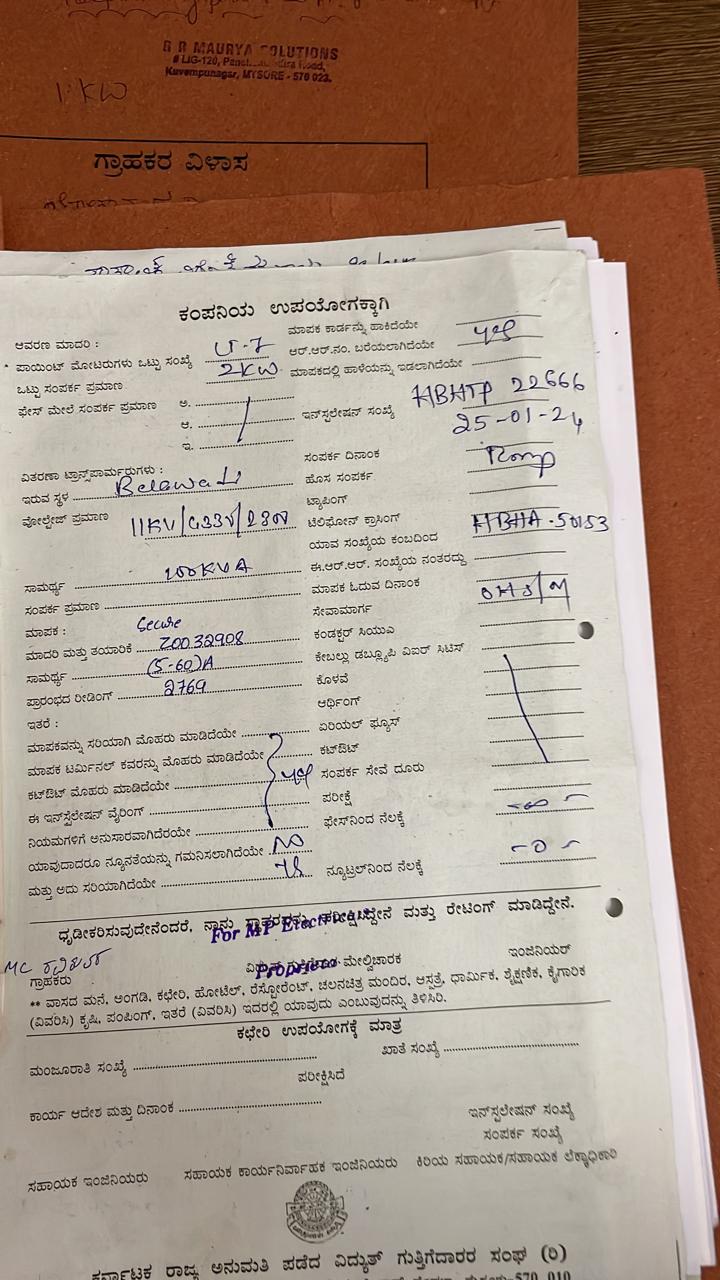 G R MAURYA SOLUTIONS
# LIG-120,
Kuvempunagar, MYSORE - 570 023.
1 KW
ಗ್ರಾಹಕರ ವಿಳಾಸ
ಕಂಪನಿಯ ಉಪಯೋಗಕ್ಕಾಗಿ
ಆವರಣ ಮಾದರಿ :
ಮಾಪಕ ಕಾರ್ಡನ್ನು ಹಾಕಿದೆಯೇ
ಪಾಯಿಂಟ್ ಮೋಟರುಗಳು ಒಟ್ಟು ಸಂಖ್ಯೆ
ಆರ್.ಆರ್.ನಂ. ಬರೆಯಲಾಗಿದೆಯೇ
ಒಟ್ಟು ಸಂಪರ್ಕ ಪ್ರಮಾಣ 2KW
ಮಾಪಕದಲ್ಲಿ ಹಾಳೆಯನ್ನು ಇಡಲಾಗಿದೆಯೇ
ಫೇಸ್ ಮೇಲೆ ಸಂಪರ್ಕ ಪ್ರಮಾಣ ಅ.
ಆ.
ಇ.
ಇನ್‌ಸ್ಟಲೇಷನ್ ಸಂಖ್ಯೆ HBHTP 22666
25-01-24
ವಿತರಣಾ ಟ್ರಾನ್ಸ್‌ಪಾರ್ಮರುಗಳು :
ಸಂಪರ್ಕ ದಿನಾಂಕ
ಇರುವ ಸ್ಥಳ Belawadi
ಹೊಸ ಸಂಪರ್ಕ
ಟ್ಯಾಪಿಂಗ್
ವೋಲ್ಟೇಜ್ ಪ್ರಮಾಣ 11KV/433V/230V
ಟೆಲಿಫೋನ್ ಕ್ರಾಸಿಂಗ್
ಯಾವ ಸಂಖ್ಯೆಯ ಕಂಬದಿಂದ HBHA-50153
ಸಾಮರ್ಥ್ಯ 100KVA
ಈ.ಆರ್.ಆರ್. ಸಂಖ್ಯೆಯ ನಂತರದ್ದು
ಸಂಪರ್ಕ ಪ್ರಮಾಣ
ಮಾಪಕ ಓದುವ ದಿನಾಂಕ
ಮಾಪಕ : Secure
ಸೇವಾಮಾರ್ಗ
ಮಾದರಿ ಮತ್ತು ತಯಾರಿಕೆ Z0032908
ಕಂಡಕ್ಟರ್ ಸಿಯುಎ
ಸಾಮರ್ಥ್ಯ (5-60)A
ಕೇಬಲ್ಲು ಡಬ್ಲ್ಯೂಪಿ ಎಐರ್ ಸಿಟಿಸ್
ಪ್ರಾರಂಭದ ರೀಡಿಂಗ್ 2769
ಕೊಳವೆ
ಇತರೆ :
ಅರ್ಥಿಂಗ್
ಮಾಪಕವನ್ನು ಸರಿಯಾಗಿ ಮೊಹರು ಮಾಡಿದೆಯೇ
ಏರಿಯಲ್ ಫ್ಯೂಸ್
ಮಾಪಕ ಟರ್ಮಿನಲ್ ಕವರನ್ನು ಮೊಹರು ಮಾಡಿದೆಯೇ
ಕಟ್‌ಔಟ್
ಕಟ್‌ಔಟ್ ಮೊಹರು ಮಾಡಿದೆಯೇ
ಸಂಪರ್ಕ ಸೇವೆ ದೂರು
ಈ ಇನ್‌ಸ್ಟಲೇಷನ್ ವೈರಿಂಗ್
ಪರೀಕ್ಷೆ
ನಿಯಮಗಳಿಗೆ ಅನುಸಾರವಾಗಿದೆರಯೇ
ಫೇಸ್‌ನಿಂದ ನೆಲಕ್ಕೆ
ಯಾವುದಾದರೂ ನ್ಯೂನತೆಯನ್ನು ಗಮನಿಸಲಾಗಿದೆಯೇ NO
ಮತ್ತು ಅದು ಸರಿಯಾಗಿದೆಯೇ
ನ್ಯೂಟ್ರಲ್‌ನಿಂದ ನೆಲಕ್ಕೆ -0-
ಧೃಡೀಕರಿಸುವುದೇನೆಂದರೆ, ನಾನು ಪರೀಕ್ಷಿಸಿದ್ದೇನೆ ಮತ್ತು ರೇಟಿಂಗ್ ಮಾಡಿದ್ದೇನೆ.
For MP Electricals
Proprietor
ಗ್ರಾಹಕರು
ಮೇಲ್ವಿಚಾರಕ
ಇಂಜಿನಿಯರ್
** ವಾಸದ ಮನೆ, ಅಂಗಡಿ, ಕಛೇರಿ, ಹೋಟೆಲ್, ರೆಸ್ಟೋರೆಂಟ್, ಚಲನಚಿತ್ರ ಮಂದಿರ, ಆಸ್ಪತ್ರೆ, ಧಾರ್ಮಿಕ, ಶೈಕ್ಷಣಿಕ, ಕೈಗಾರಿಕ
(ವಿವರಿಸಿ) ಕೃಷಿ, ಪಂಪಿಂಗ್, ಇತರೆ (ವಿವರಿಸಿ) ಇದರಲ್ಲಿ ಯಾವುದು ಎಂಬುವುದನ್ನು ತಿಳಿಸಿರಿ.
ಕಛೇರಿ ಉಪಯೋಗಕ್ಕೆ ಮಾತ್ರ
ಮಂಜೂರಾತಿ ಸಂಖ್ಯೆ
ಖಾತೆ ಸಂಖ್ಯೆ
ಪರೀಕ್ಷಿಸಿದೆ
ಕಾರ್ಯ ಆದೇಶ ಮತ್ತು ದಿನಾಂಕ
ಇನ್‌ಸ್ಟಲೇಷನ್ ಸಂಖ್ಯೆ
ಸಂಪರ್ಕ ಸಂಖ್ಯೆ
ಸಹಾಯಕ ಇಂಜಿನಿಯರು ಸಹಾಯಕ ಕಾರ್ಯನಿರ್ವಾಹಕ ಇಂಜಿನಿಯರು ಕಿರಿಯ ಸಹಾಯಕ/ಸಹಾಯಕ ಲೆಕ್ಕಾಧಿಕಾರಿ
ಕರ್ನಾಟಕ ರಾಜ್ಯ ಅನುಮತಿ ಪಡೆದ ವಿದ್ಯುತ್ ಗುತ್ತಿಗೆದಾರರ ಸಂಘ (ರಿ)